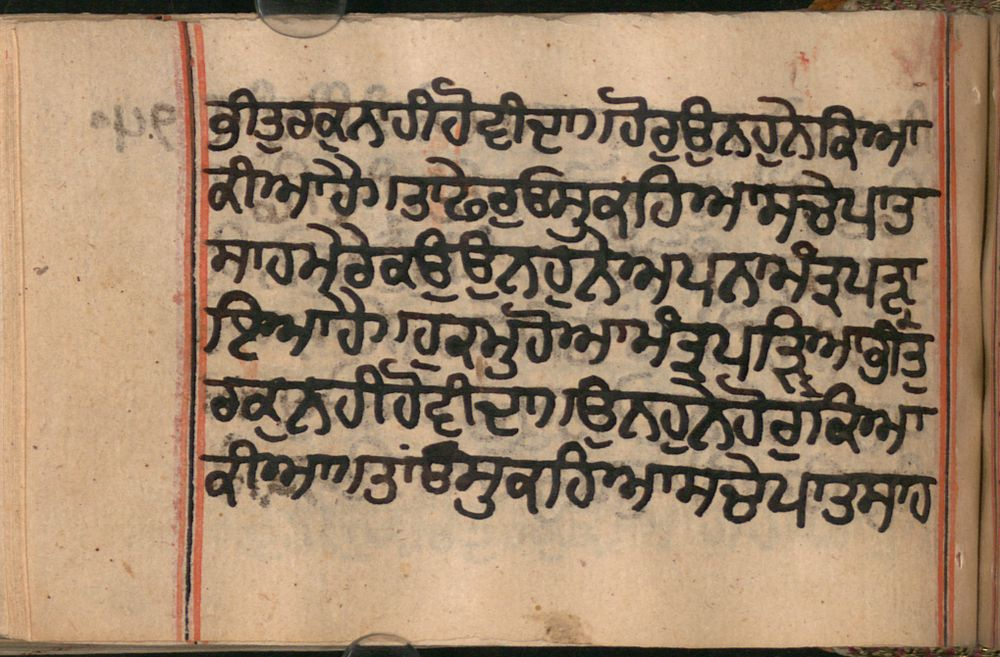 ਭੀਤੁਰਕੁਨਾਹੀਹੋਵੀਦਾ।ਹੋਰੁਉਨਹੁਨੇਕਿਆ
ਕੀਆਹੈ।ਤਾਫੇਰੁਓਸੁਕਹਿਆਸਚੇਪਾਤ
ਸਾਹਮੇਰੇਕਉਉਨਹੁਨੇਅਪਨਾਮੰਤ੍ਰਪੜ੍ਹਾ
ਇਆਹੈ।ਹੁਕਮੁਹੋਆਮੰਤ੍ਰੁਪੜਿਆਭੀਤੁ
ਰਕੁਨਹੀਹੋਵੀਦਾ।ਉਨਹੁਨੇਹੋਰੁਕਿਆ
ਕੀਆ।ਤਾਂਓਸੁਕਹਿਆਸਚੇਪਾਤਸਾਹ